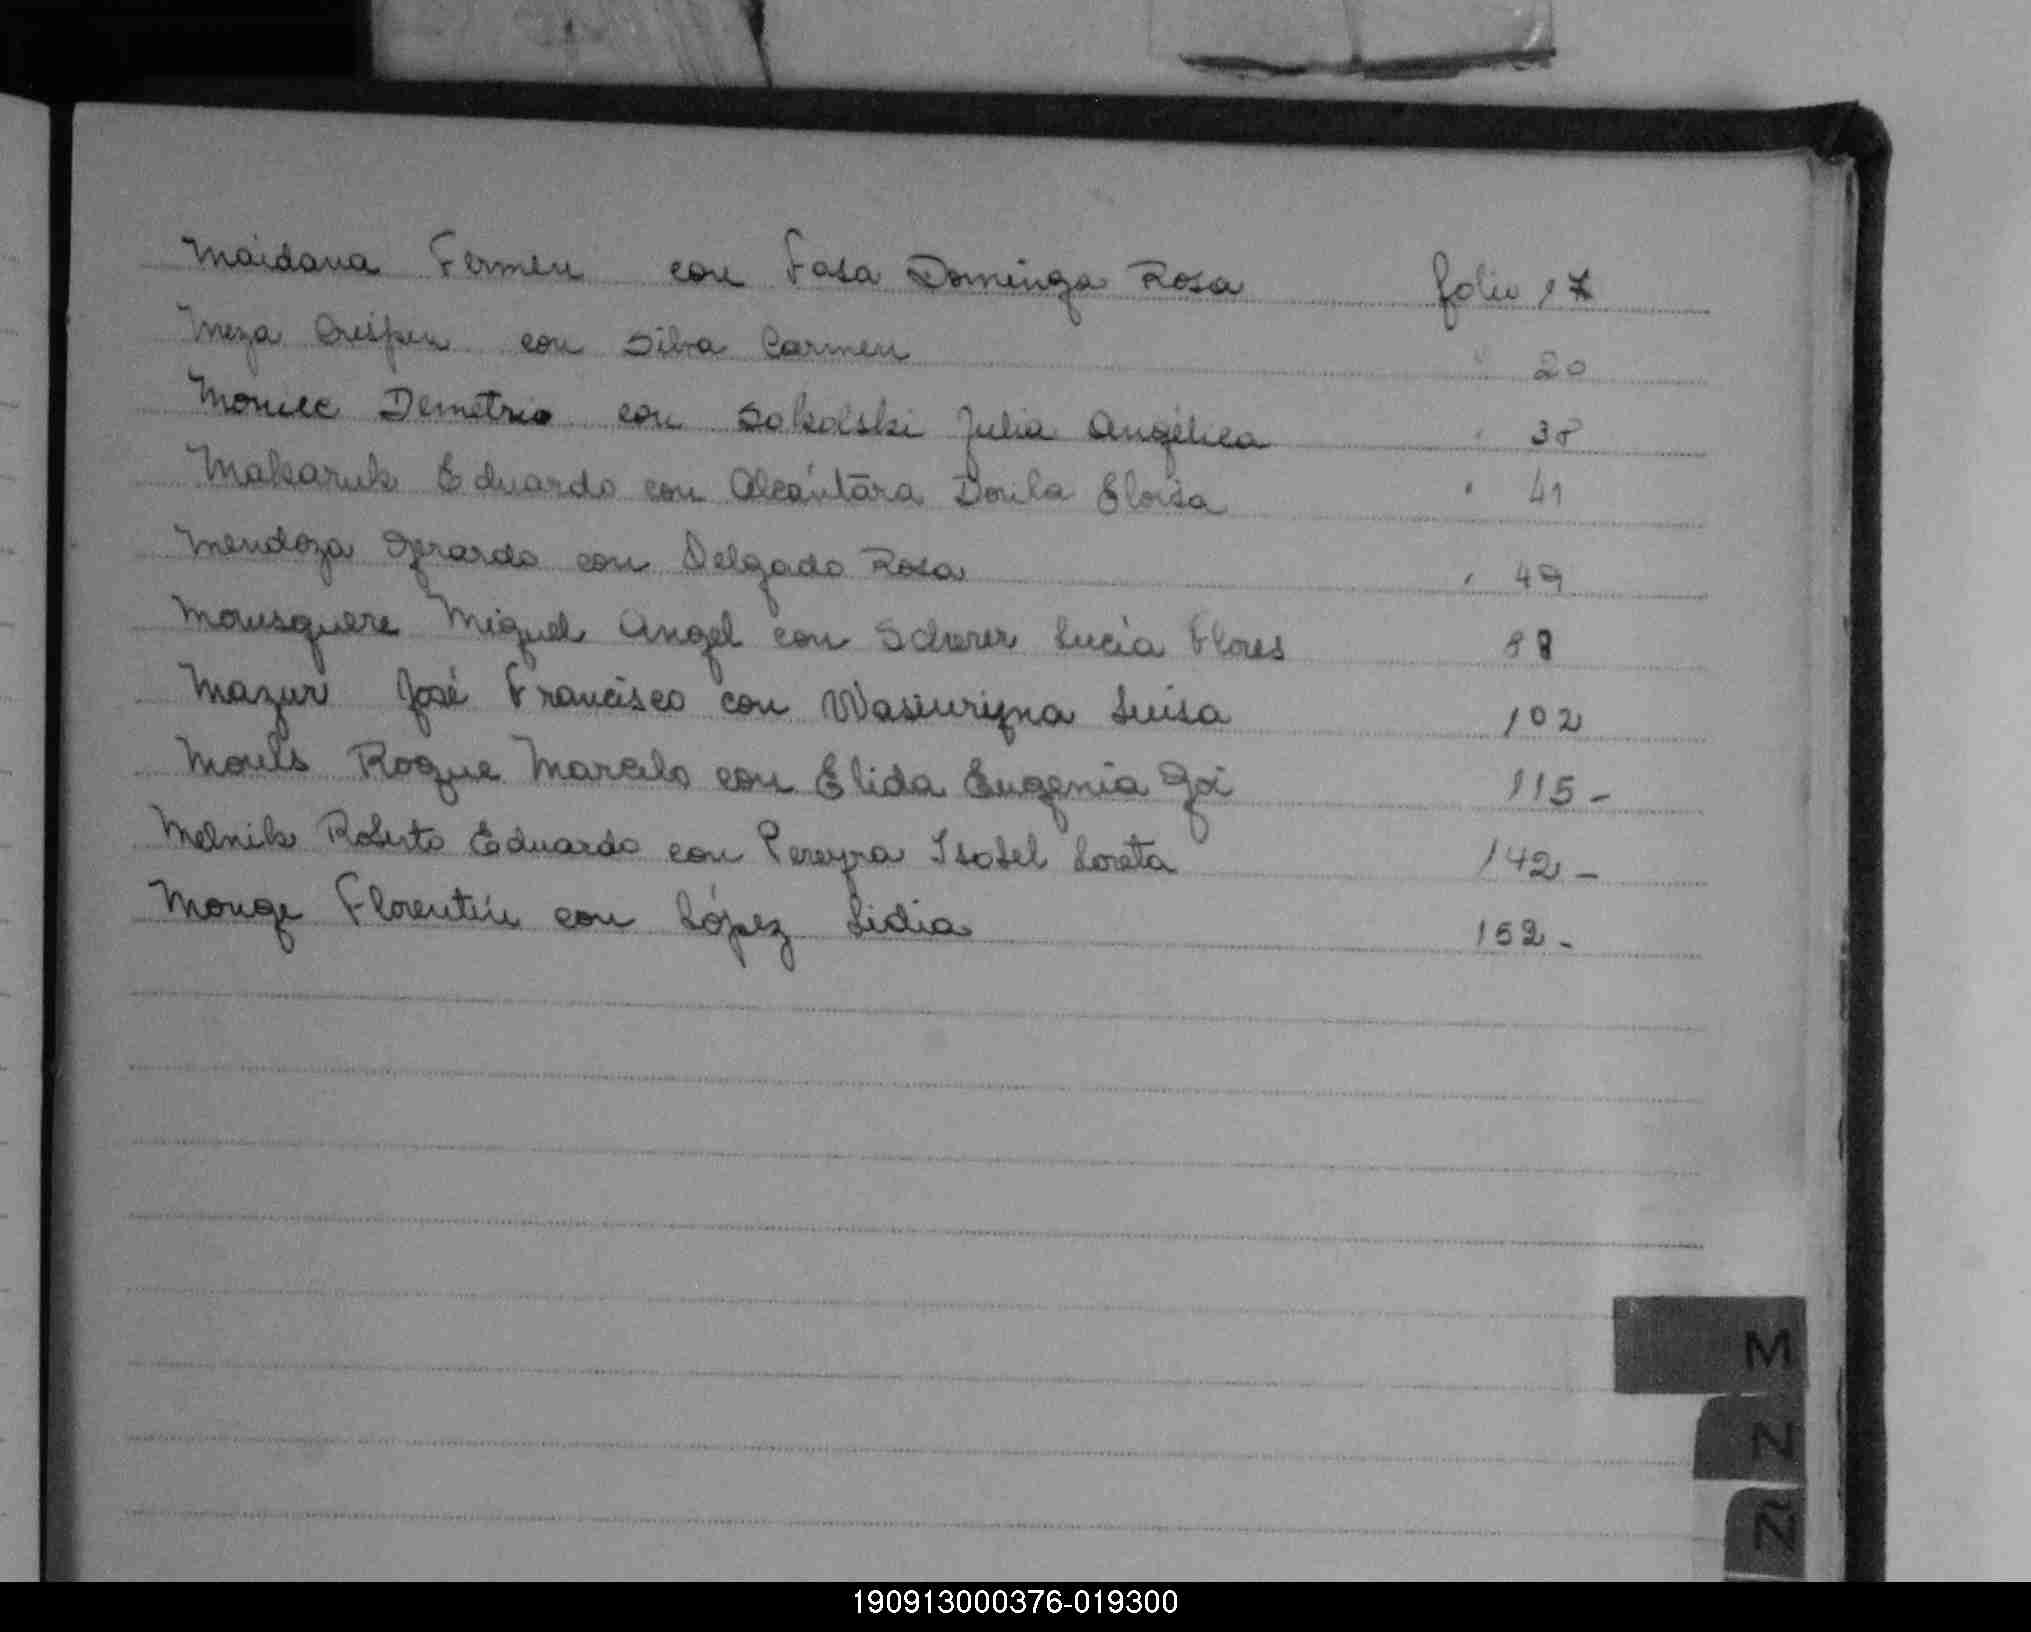 Maidana Fermin con Fosa Dominga Rosa folio 17
Meza Crispin con Silva Carmen " 20
Moniec Demetrio con Sokolski Julia Angélica " 38
Makaruk Eduardo con Alcántara Dorila Eloisa " 41
Mendoza Gerardo con Delgado Rosa " 49
Mousquere Miguel Angel con Scherer Lucía Flores 88
Mazur José Francisco con Luisa 102
Roque Marcelo con Elida Eugenia Goi 115-
Melnik Roberto Eduardo con Pereyra Isabel Loreta 142-
Monge Florentín con López Lidia 152-
M
N
Ñ
190913000376-019300